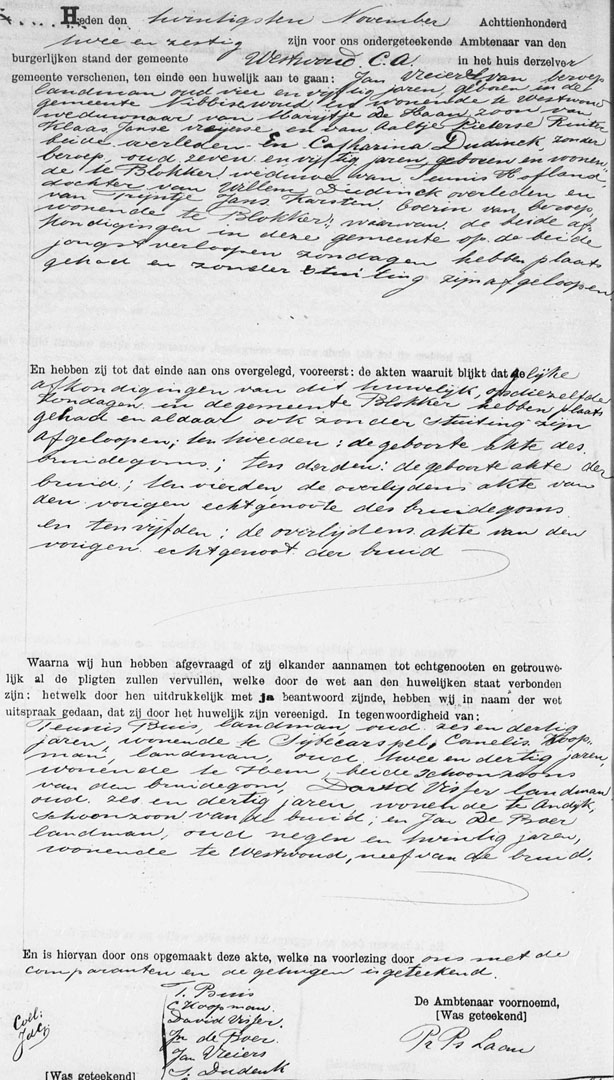 Heden den twintigsten November Achttienhonderd
twee en zestig zijn voor ons ondergeteekende Ambtenaar van den
burgerlijken stand der gemeente Westwoud C.A. in het huis derzelver
gemeente verschenen, ten einde een huwelijk aan te gaan: Jan Vreiers van beroep
landman oud vier en vijftig jaren, geboren in de
gemeente Nibbixwoud en wonende te Westwoud
weduwnaar van Marijtje de Haan, zoon van
Klaas Janse Vreijerse en van Aaltje Pieterse Ruiter
beide overleden En Catharina Dudinck zonder
beroep, oud zeven en vijftig jaren, geboren en wonen-
de te Blokker weduwe van Teunis Hofland
dochter van Willem Dudinck overleden en
van Trijntje Jans Karsten, boerin van beroep
wonende te Blokker; waarvan de beide af-
kondigingen in deze gemeente op de beide
jongst verloopen zondagen hebben plaats
gehad en zonder stuiting zijn afgeloopen
En hebben zij tot dat einde aan ons overgelegd, vooreerst: de akten waaruit blijkt dat gelijke
afkondigingen van dit huwelijk, op diezelfde
zondagen in de gemeente Blokker hebben plaats
gehad en aldaar ook zonder stuiting zijn
afgeloopen; ten tweeden: de geboorte akte des
bruidegoms; ten derden: de geboorte akte der
bruid; ten vierden de overlijdens akte van
den vorigen echtgenoote des bruidegoms
en ten vijfden: de overlijdens akte van den
vorigen echtgenoot der bruid
Waarna wij hun hebben afgevraagd of zij elkander aannamen tot echtgenooten en getrouwe-
lijk al de pligten zullen vervullen, welke door de wet aan den huwelijken staat verbonden
zijn: hetwelk door hen uitdrukkelijk met ja beantwoord zijnde, hebben wij in naam der wet
uitspraak gedaan, dat zij door het huwelijk zijn vereenigd. In tegenwoordigheid van:
Teunis Buis, landman oud zes en dertig
jaren, wonende te Sijbecarspel, Canelis Koop-
man, landman, oud twee en dertig jaren,
wonende te Hem, beide schoonzoons
van den bruidegom, David Visser landman
oud zes en dertig jaren, wonende te Andijk,
schoonzoon van de bruid; en Jan De Boer
landman, oud negen en twintig jaren,
wonende te Westwoud, neef van de bruid.
En is hiervan door ons opgemaakt deze akte, welke na voorlezing door ons met de
comparanten en de getuigen is geteekend.
T. Buis
C Koopman.
David Visser.
Jn de Boer.
Jan Vreiers
De Ambtenaar voornoemd,
[Was geteekend]
Coll:
[Was geteekend]